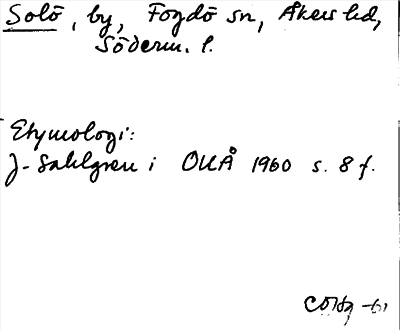 Solö, by, Fogdö sn, Åkers hd,
Söderm. l.
Etymologi:
J. Sahlgren i OUÅ 1960 s. 8 f.